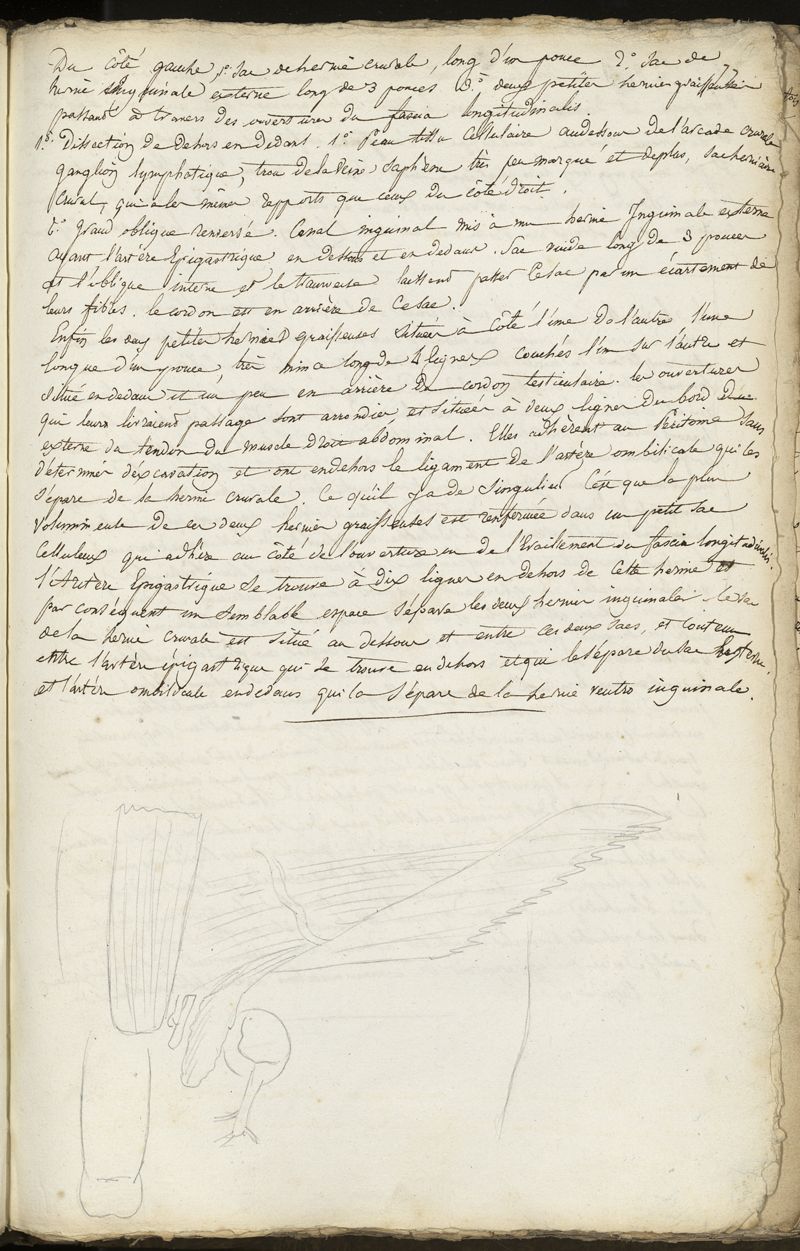 Du côté gauche, 1º. Sac de hernie crurale, long d'un pouce 2º. Sac de
hernie inguinale externe long de 3 pouces 3º. deux petites hernies graisseuses
passant à travers des ouvertures du fascia longitudinalis.
1º. Dissection de dehors en dedans. 1º. Peau tissu Cellulaire audessous de l'arcade crurale
ganglion lymphatique, trou de la Veine Saphène très peu marqué et deplus, sac herniaire
Crural, qui a les mêmes rapports que ceux du côté droit.
2º. grand oblique renversé. Canal inguinal mis à nu hernie Inguinale externe
ayant l'artère Epigastrique en dessous et en dedans. Sac vuide long de 3 pouces
et l'oblique interne et le transverse laissent passer Ce sac par un écartement de
leurs fibres. le cordon est en arrière de Ce sac.
Enfin les deux petites hernies graisseuses Situées à Côté l'une de l'autre l'une
longue d'un pouce, très mince long de 4 lignes couchés l'un sur l'autre et
situé en dedans et un peu en arrière du cordon testiculaire. les ouvertures
qui leurs livraient passage sont arrondies, et situées à deux lignes du bord
externe du tendon du muscle droit abdominal. Elles adhèrent au Péritoine sans
déterminer d'excavation et ont endehors le ligament de l'artère ombilicale qui les
Sépare de la hernie crurale. Ce qu'il y a de Singulier C'est que la plus
volumineuse de ces deux hernies graisseuses est renfermée dans un petit sac
Celluleux qui adhère au côté de l'ouverture ou de l'Eraillement du fascia longitudinalis.
l'Artère Epigastrique se trouve à dix lignes en dehors de Cette hernie et
par conséquent un semblable espace sépare les deux hernies inguinales. le sac
de la hernie Crurale est situé au dessous et entre ces deux sacs, et contenu
entre l'artère épigastrique qui se trouve en dehors et qui le sépare du sac
et l'artère ombilicale endedans qui la Sépare de la hernie ventro inguinale.